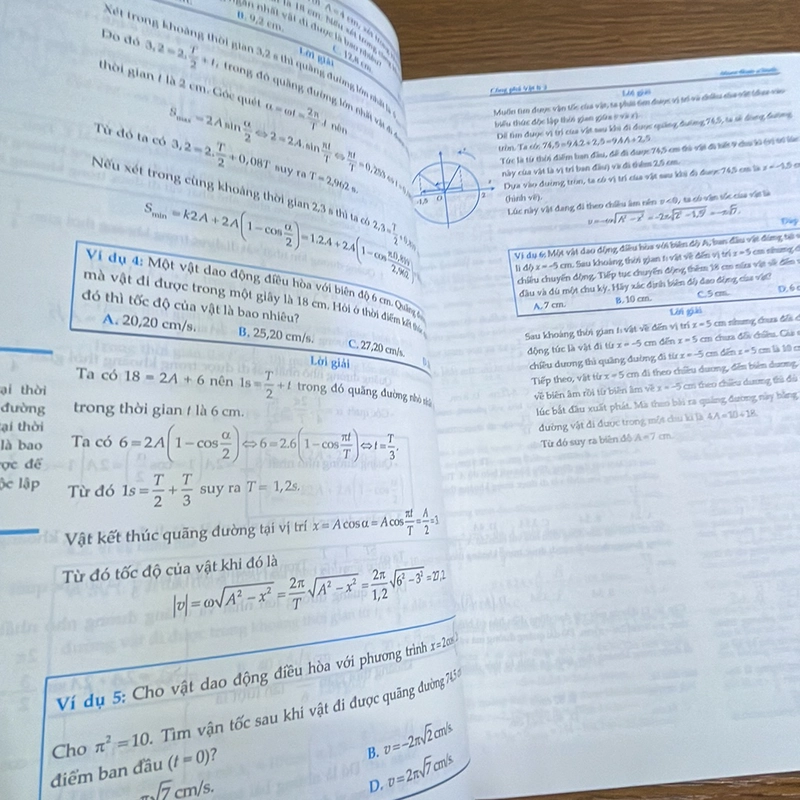 B. 9,2 cm.
C. 12,8 cm.
Lời giải
Xét trong khoảng thời gian 3,2 s thì quãng đường lớn nhất là
Do đó 3,2 = 2.T/2 + t, trong đó quãng đường lớn nhất vật đi
thời gian t là 2 cm. Góc quét α = ωt = 2π/T t nên
Smax = 2A sin α/2 ⇔ 2 = 2A.sin πt/T ⇔ πt/T = 0,253
Từ đó ta có 3,2 = 2.T/2 + 0,08T suy ra T = 2,962 s.
Nếu xét trong cùng khoảng thời gian 2,3 s thì ta có 2,3 = T/2 +
Smin = k2A + 2A(1 − cos α/2) = 1.2A + 2A(1 − cos
Ví dụ 4: Một vật dao động điều hòa với biên độ 6 cm. Quãng
mà vật đi được trong một giây là 18 cm. Hỏi ở thời điểm kết
đó thì tốc độ của vật là bao nhiêu?
A. 20,20 cm/s.
B. 25,20 cm/s.
C. 27,20 cm/s.
Lời giải
Ta có 18 = 2A + 6 nên 1s = T/2 + t trong đó quãng đường nhỏ
trong thời gian t là 6 cm.
Ta có 6 = 2A(1 − cos α/2) ⇔ 6 = 2.6(1 − cos πt/T) ⇔ t = T/3.
Từ đó 1s = T/2 + T/3 suy ra T = 1,2s.
Vật kết thúc quãng đường tại vị trí x = A cos α = A cos πt/T = A/2 = 3
Từ đó tốc độ của vật khi đó là
|v| = ω√(A² − x²) = 2π/T √(A² − x²) = 2π/1,2 √(6² − 3²) = 27,2
Ví dụ 5: Cho vật dao động điều hòa với phương trình x = 2cos
Cho π² = 10. Tìm vận tốc sau khi vật đi được quãng đường 74,5
điểm ban đầu (t = 0)?
π√7 cm/s.
B. v = −2π√2 cm/s.
D. v = 2π√7 cm/s.
ại thời
đường
ại thời
là bao
ợc để
ộc lập
Công phá Vật lí 2
Lời giải
Muốn tìm được vận tốc của vật, ta phải tìm được vị trí và chiều của vật
biểu thức độc lập thời gian giữa v và x).
Để tìm được vị trí của vật sau khi đi được quãng đường 74,5, ta sẽ dùng đường
tròn. Ta có: 74,5 = 9.4.2 + 2,5 = 9.4A + 2,5
Tức là từ thời điểm ban đầu, để đi được 74,5 cm thì vật đi hết 9 chu kì
này của vật là vị trí ban đầu) và đi thêm 2,5 cm.
Dựa vào đường tròn, ta có vị trí của vật sau khi đi được 74,5 cm là x = −1,5
(hình vẽ).
Lúc này vật đang đi theo chiều âm nên v < 0, ta có vận tốc của vật là
-1,5
O
2
Ví dụ 6: Một vật dao động điều hòa với biên độ A, ban đầu vật đứng tại
li độ x = −5 cm. Sau khoảng thời gian t₁ vật về đến vị trí x = 5 cm nhưng
chiều chuyển động. Tiếp tục chuyển động thêm 18 cm nữa vật về đến
đầu và đủ một chu kỳ. Hãy xác định biên độ dao động của vật?
A. 7 cm.
B. 10 cm.
C. 5 cm.
D. 6
Lời giải
Sau khoảng thời gian t₁ vật về đến vị trí x = 5 cm nhưng chưa đổi
động tức là vật đi từ x = −5 cm đến x = 5 cm chưa đổi chiều.
chiều dương thì quãng đường đi từ x = −5 cm đến x = 5 cm là 10
Tiếp theo, vật từ x = 5 cm đi theo chiều dương, đến biên dương,
về biên âm rồi từ biên âm về x = −5 cm theo chiều dương thì đó
lúc bắt đầu xuất phát. Mà theo bài ra quãng đường này bằng
đường vật đi được trong một chu kì là 4A = 10 + 18.
Từ đó suy ra biên độ A = 7 cm.